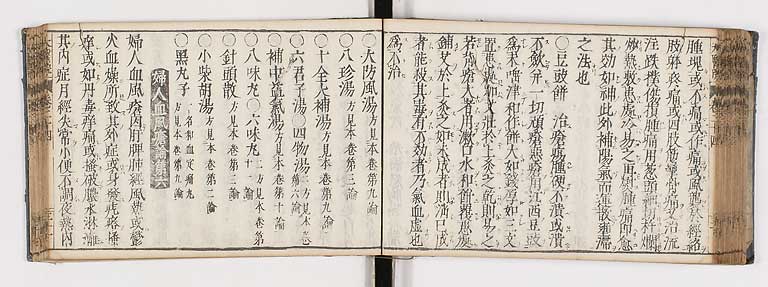 腫塊或不痛或作痛或風襲於經絡
肢骭疼痛或四肢筋攣骨痛又治流
注跌撲傷損腫痛用葱頭細切杵爛
炒熱敷患處冷易之再熨腫痛即愈
其効如神此外補陽氣而散壅滯
之法也
○豆豉餅 治瘡瘍腫硬不潰或潰
不斂并一切頑瘡惡瘡用江西豆豉
為末唾津和作餅大如錢厚如三文
置患處以艾壯於上灸之乾則易之
若背瘡大者用漱口水和餅覆患處
鋪艾於上灸之未成者即消已成
者能殺其毒有不効者乃氣血虛也
為不治
○大防風湯 方見本卷第九論
○八珍湯 方見本卷第三論
○十全大補湯 方見本卷第三論
○六君子湯○四物湯 二方見本卷第六論
○補中益氣湯 方見本卷第十論
○八味丸○六味丸 二方見本卷第十一論
○針頭散 方見本卷第三論
○小柴胡湯 方見本卷第二論
○黑丸子 一名和血定痛丸 方見本卷第九論
婦人血風瘡論第六
婦人血風瘡因肝脾肺經風熱或鬱
火血燥所致其外症或身發疙瘩搔
癢或如丹毒痒痛或搔破膿水淋漓
其內症月經失常小便不調夜熱內